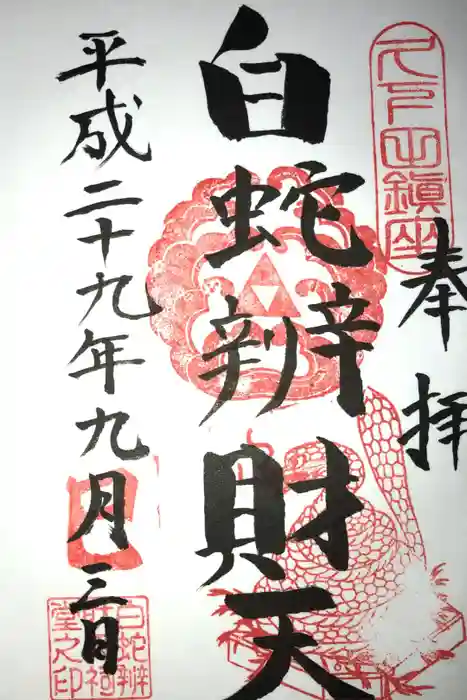 奉拝
白蛇辨財天
平成二十九年九月三日
白蛇辨
財天祠
堂之印